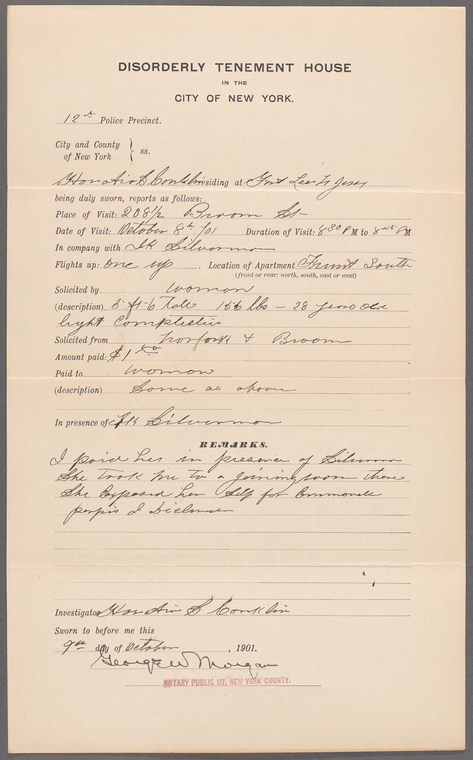 DISORDERLY TENEMENT HOUSE
IN THE
CITY OF NEW YORK.
12th Police Precinct.
City and County
of New York } ss.
Horatio S Conklin residing at Fort Lee N Jersy
being duly sworn, reports as follows:
Place of Visit: 208 1/2 Broom St
Date of Visit: October 8th/01 Duration of Visit: 8 30 P M to 8 45 P M
In company with Silverman
Flights up: one up. Location of Apartment Frunt South
(front or rear: north, south, east or west)
Solicited by woman
(description) 5 ft 6 tall 156 lbs — 28 years old
light Complection
Solicited from Norfork & Broom
Amount paid: $1 00
Paid to woman
(description) Same as above
In presence of Silverman
REMARKS.
I paid her in presence of Silverman
She took me to a joining room there
She Exposed her self for
I
Investigator Horatio S Conklin
Sworn to before me this
9th day of October, 1901.
George W Morgan
NOTARY PUBLIC 117, NEW YORK COUNTY.